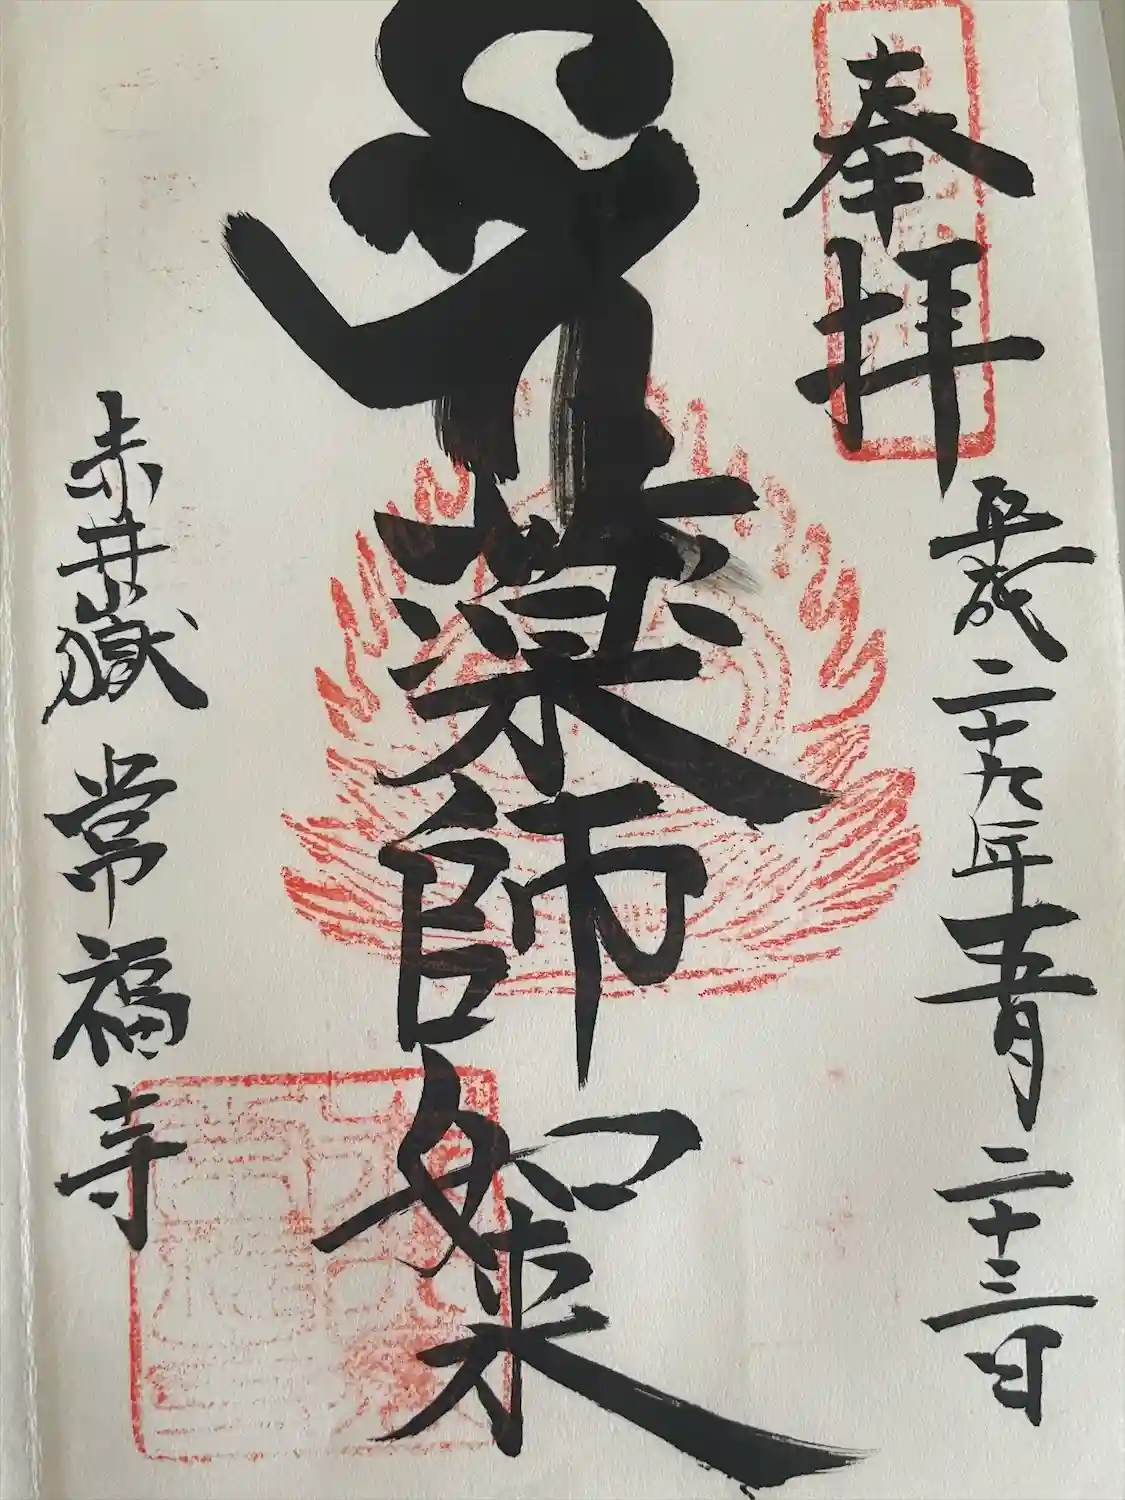 奉拝
平成二十九年五月二十三日
薬師如来
赤井嶽
常福寺